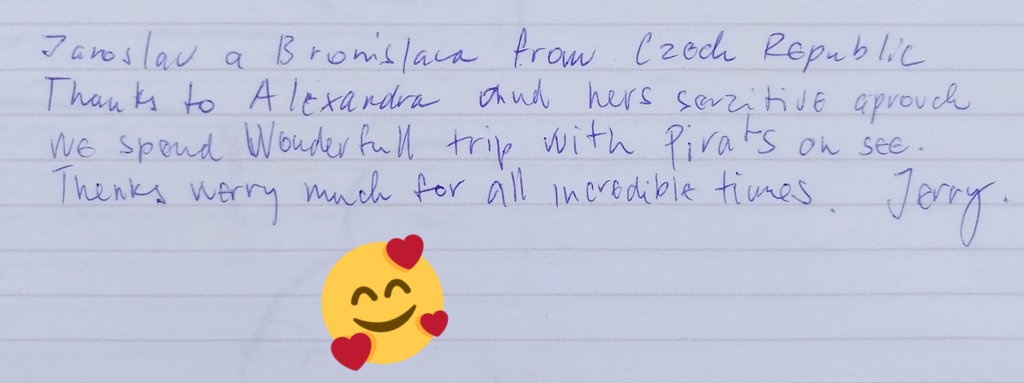 Jaroslav a Bronislava from Czech Republic
Thanks to Alexandra and hers senzitive aprouch
we spend Wonderfull trip with Pirats on see.
Thenks werry much for all incredible times. Jerry.